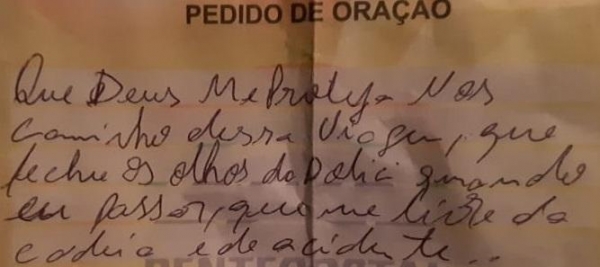 PEDIDO DE ORAÇÃO
Que Deus Me Proteja Nos
Caminho dessa Viagem, que
feche os olhos da Polici quando
eu passar, que me livre da
cadeia e de acidente..
PENTECOSTAL